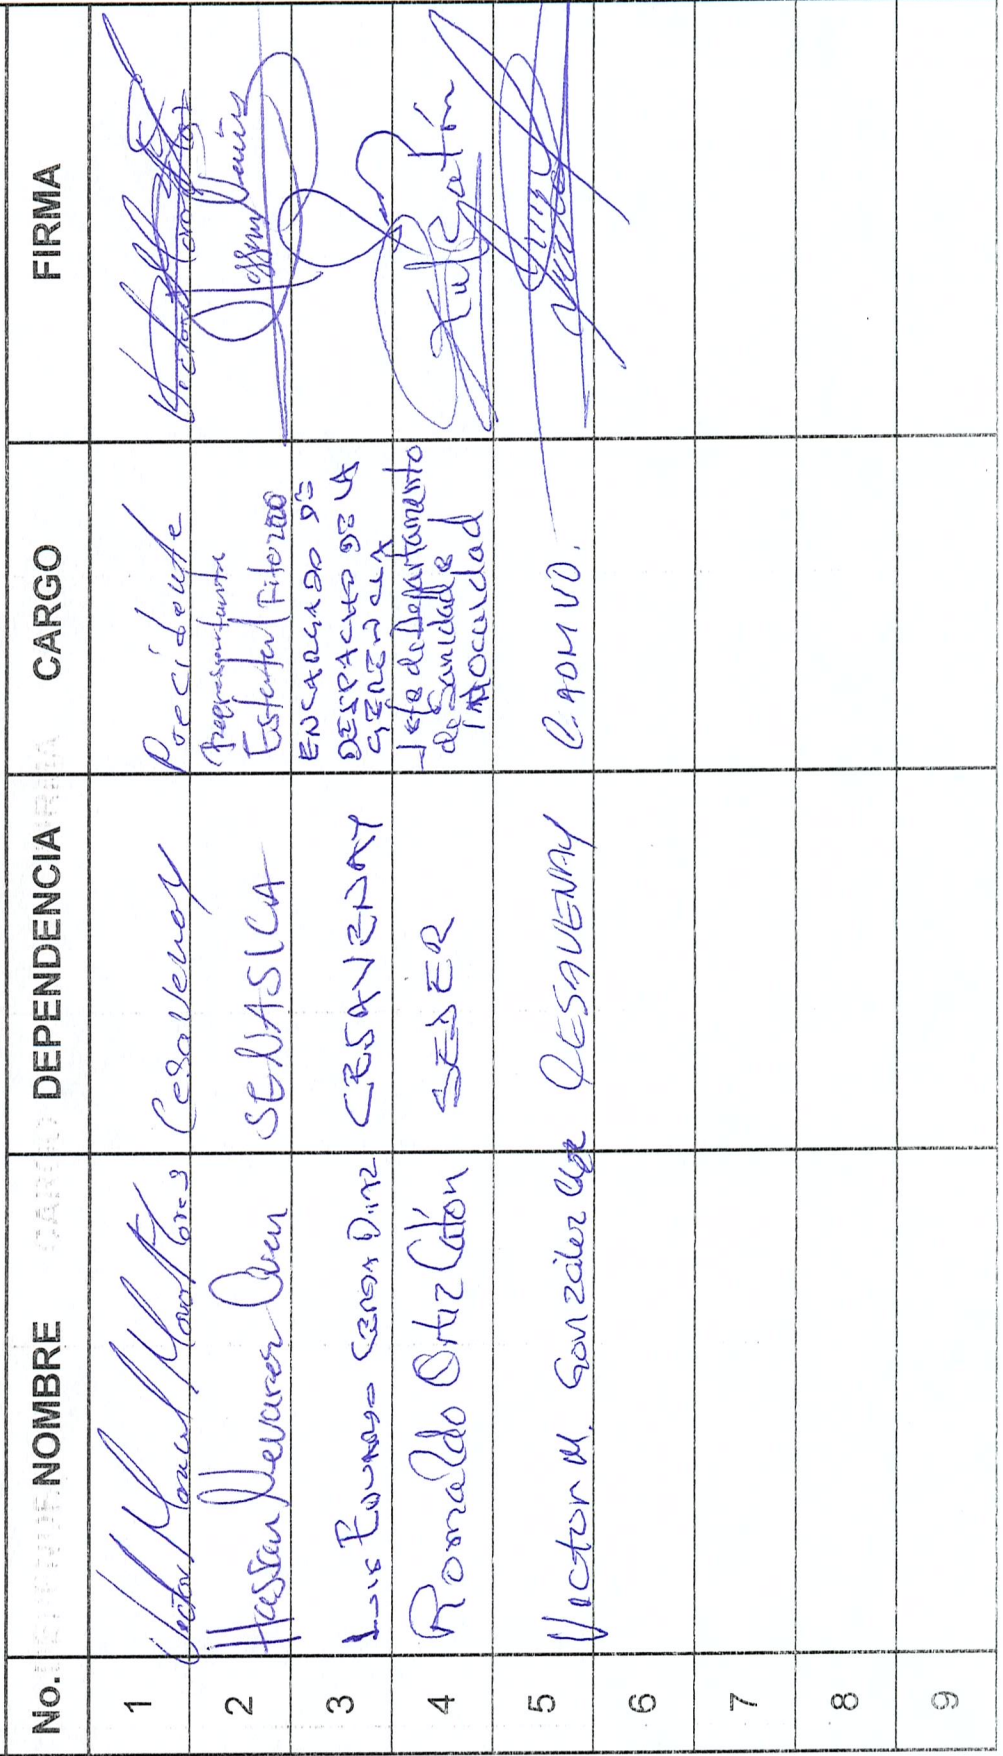 No. NOMBRE DEPENDENCIA CARGO FIRMA
1 Victor Manuel Cesavenay Precidente
2 Hassan Nevarez SENASICA Representante
Estatal Fitozoo
3 LUIS EDUARDO DIAZ CESAVENAY ENCARGADO DE
DESPACHO DE LA
GERENCIA
4 Romaldo Ortiz Catón SEDER Jefe de Departamento
de Sanidad e
Inocuidad
5 Victor M. González CESAVENAY C. ADMVO.
6
7
8
9